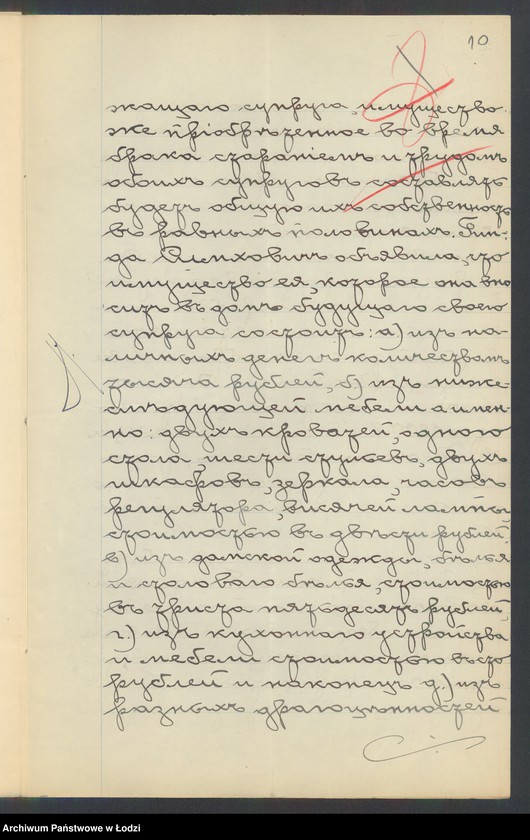 10
жащаго супруга, имущество
же пріобрѣтенное во время
брака стараніемъ и трудомъ
обоихъ супруговъ составлять
будетъ общую ихъ собственность
въ равныхъ половинахъ. Гин-
да объявила, что
имущество ея, которое она вно
ситъ въ домъ будущаго своего
супруга состоитъ: а) изъ на-
личныхъ денегъ количествомъ
тысяча рублей, б) изъ ниже-
слѣдующей мебели а имен-
но: двухъ кроватей, одного
стола, шести стульевъ, двухъ
шкафовъ, зеркала, часовъ
регулятора, висячей лампы
стоимостью въ двѣсти рублей,
в) изъ дамской одежды, бѣлья
и столоваго бѣлья, стоимостью
въ триста пятьдесятъ рублей,
г.) изъ кухоннаго устройства
и мебели стоимостью въ сто
рублей и наконецъ д.) изъ
разныхъ драгоцѣнностей
Archiwum Państwowe w Łodzi